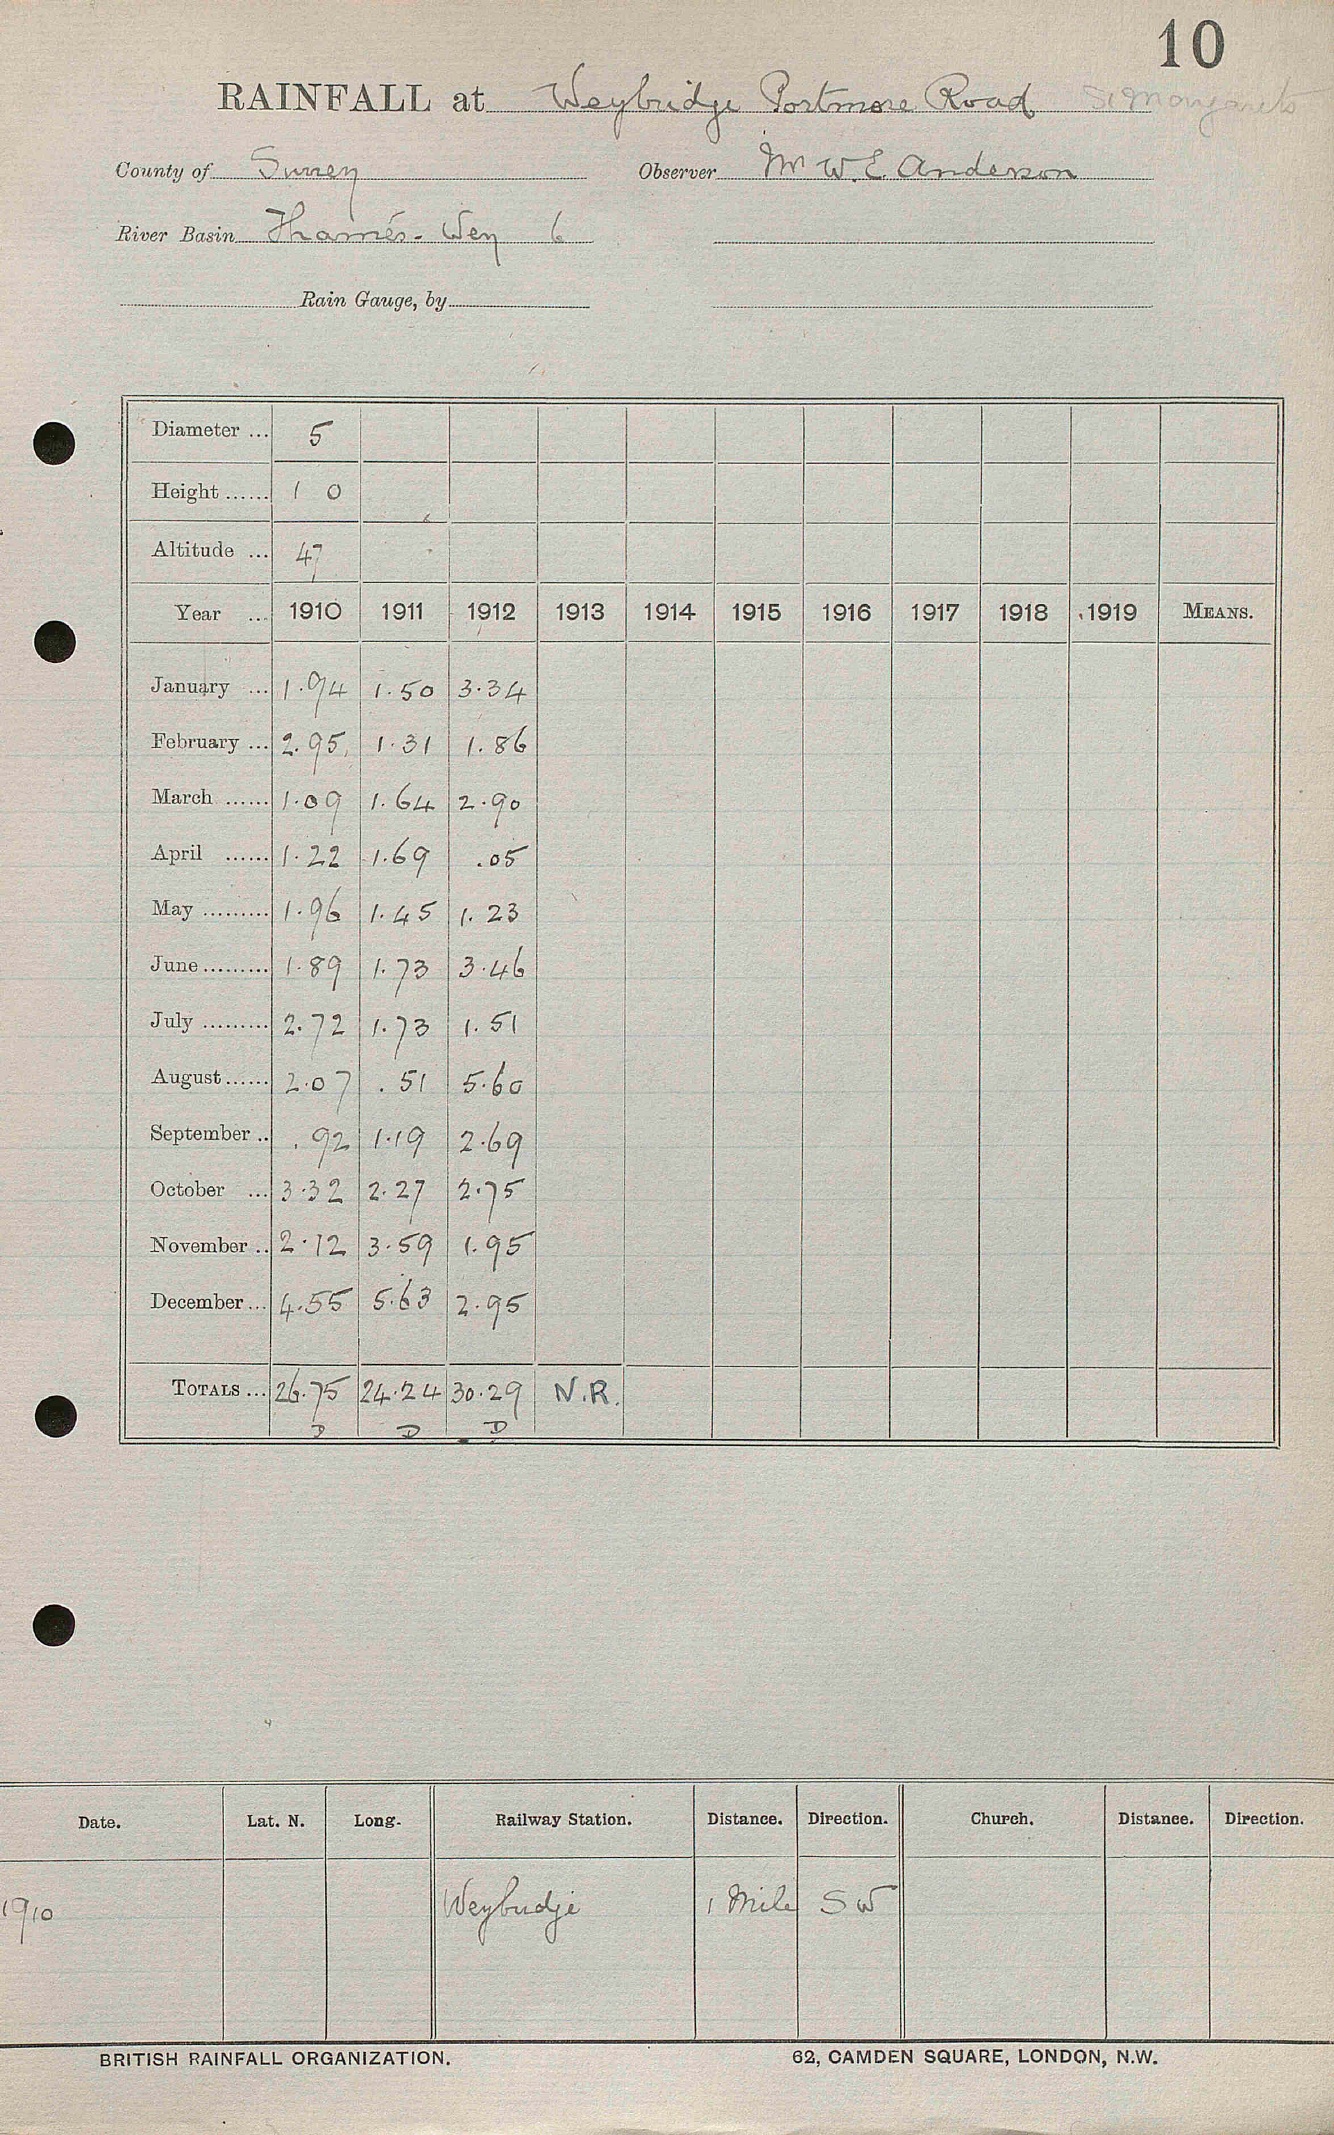 10
RAINFALL at Weybridge Portmore Road St Margarets
County of Surrey Observer Mr W.E. Anderson
River Basin Thames - Wey 6
Rain Gauge, by
Diameter ... 5
Height ...... 1 0
Altitude ... 47
Year ... 1910 1911 1912 1913 1914 1915 1916 1917 1918 1919 MEANS.
January ... 1.94 1.50 3.34
February ... 2.95 1.31 1.86
March ...... 1.09 1.64 2.90
April ...... 1.22 1.69 .05
May ......... 1.96 1.45 1.23
June ......... 1.89 1.73 3.46
July ......... 2.72 1.73 1.51
August ...... 2.07 .51 5.60
September .. .92 1.19 2.69
October ... 3.32 2.27 2.75
November .. 2.12 3.59 1.95
December ... 4.55 5.63 2.95
TOTALS ... 26.75 24.24 30.29 N.R.
D D D
Date. Lat. N. Long. Railway Station. Distance. Direction. Church. Distance. Direction.
1910 Weybridge 1 Mile SW
BRITISH RAINFALL ORGANIZATION. 62, CAMDEN SQUARE, LONDON, N.W.